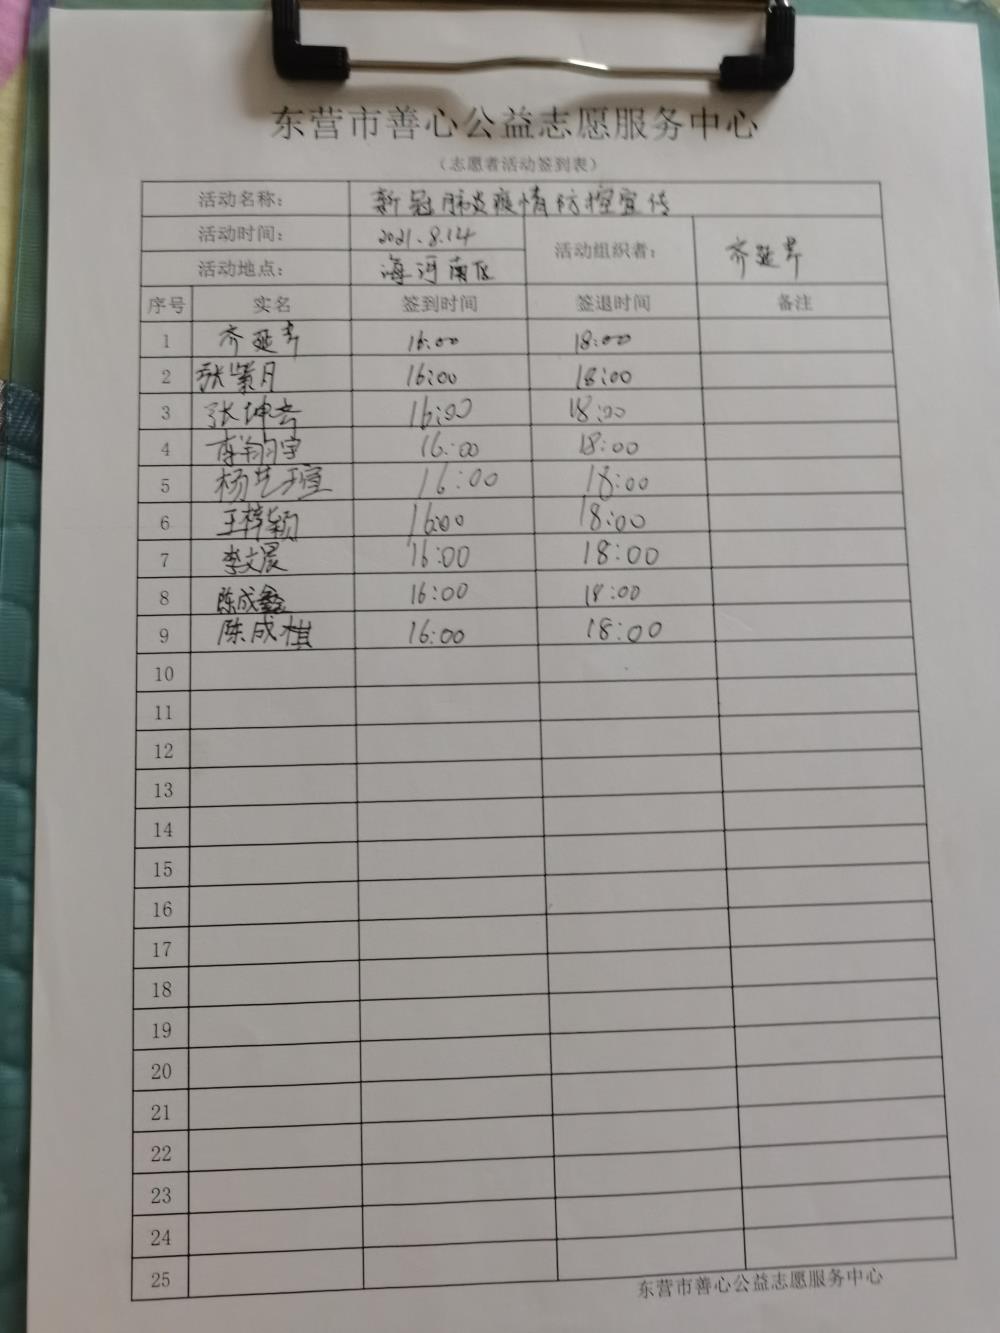 东营市善心公益志愿服务中心
（志愿者活动签到表）
活动名称： 新冠肺炎疫情防控宣传
活动时间： 2021.8.14 活动组织者： 齐延芹
活动地点： 海河南区
序号 实名 签到时间 签退时间 备注
1 齐延芹 16:00 18:00
2 张紫月 16:00 18:00
3 张坤 16:00 18:00
4 翔宇 16:00 18:00
5 杨艺瑄 16:00 18:00
6 王梓颖 16:00 18:00
7 李文晨 16:00 18:00
8 陈成鑫 16:00 18:00
9 陈成棋 16:00 18:00
10
11
12
13
14
15
16
17
18
19
20
21
22
23
24
25
东营市善心公益志愿服务中心